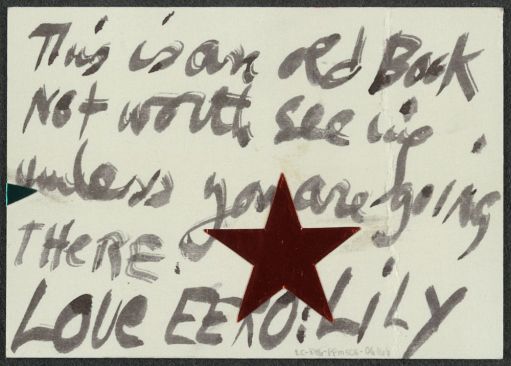 This is an old Book
Not worth seeing,
unless you are going
THERE.
LOVE EERO: LiLY